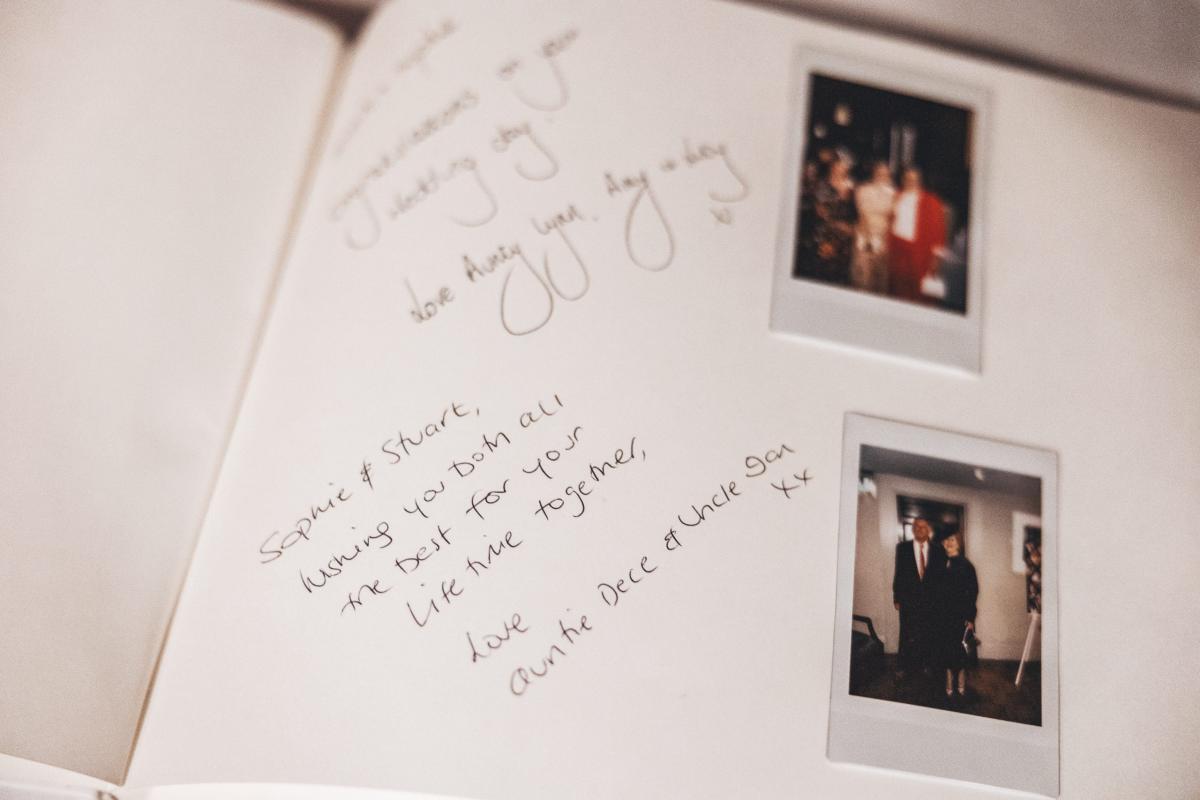 Sophie
congratulations on your
wedding day.
Love Aunty Lynn, Amy
x
Sophie & Stuart,
wishing you both all
the best for your
Life time together,
Love
auntie Dece & Uncle Ian
xx